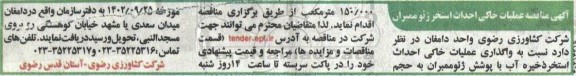 آگهی مناقصه عملیات خاکی احداث استخر ژئوممبران
شرکت کشاورزی رضوی واحد دامغان در نظر
دارد نسبت به واگذاری عملیات خاکی احداث
استخرذخیره آب با پوشش ژئوممبران به حجم
۱۵۰/۰۰۰ مترمکعب از طریق برگزاری مناقصه
اقدام نماید، لذا متقاضیان محترم می توانند جهت
شرکت در مناقصه به آدرس tender.epl.ir (قسمت
مناقصات و مزایده ها) مراجعه و قیمت پیشنهادی
خود را در پاکت سربسته تا ساعت ۱۴روز شنبه
مورخه ۱۴۰۲/۰۹/۲۵ به دفترسازمان واقع دردامغان
میدان سعدی یا مشهد خیابان کوهسنگی رو بروی
مسجدالنبی،تحویل‌ورسیددریافت نمایند. تلفن‌های
تماس: ۳۵۲۲۵۳۱۶-۰۲۳ ۳۵۲۲۵۳۱۵-۰۲۳
شرکت کشاورزی رضوی-آستان قدس رضوی